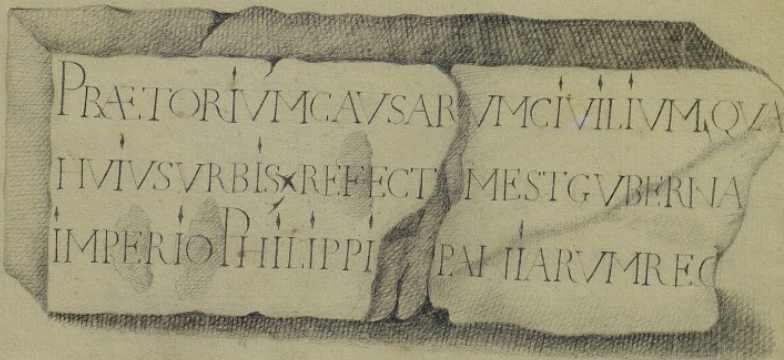 PRÆTORIVMCAVSARVMCIVILIVM,QVA
HVIVSVRBIS×REFECT MESTGVBERNA
IMPERIO PHILIPPI